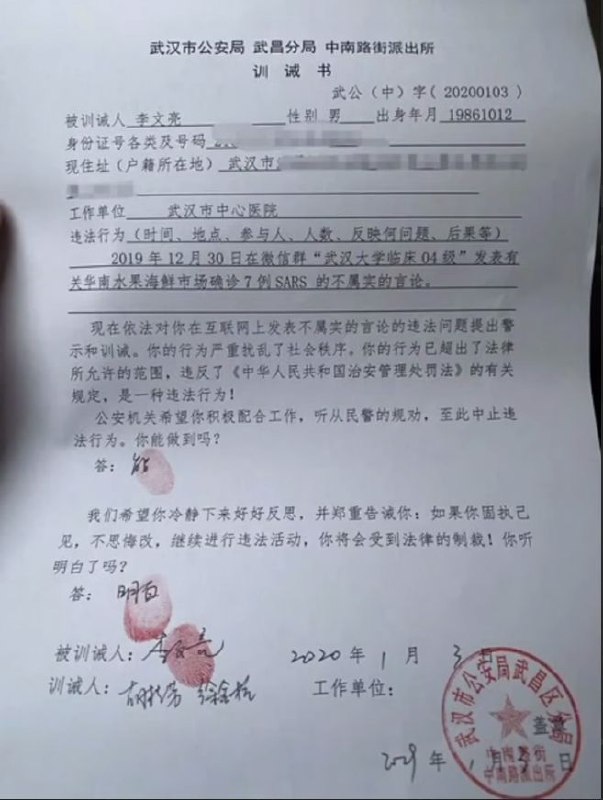 武汉市公安局 武昌分局 中南路街派出所
训诫书
武公（中）字（20200103）
被训诫人 李文亮 性别 男 出身年月 19861012
身份证号各类及号码
现住址（户籍所在地） 武汉市
工作单位 武汉市中心医院
违法行为（时间、地点、参与人、人数、反映何问题、后果等）
2019年12月30日在微信群“武汉大学临床04级”发表有
关华南水果海鲜市场确诊7例SARS的不属实的言论。
现在依法对你在互联网上发表不属实的言论的违法问题提出警
示和训诫。你的行为严重扰乱了社会秩序。你的行为已超出了法律
所允许的范围，违反了《中华人民共和国治安管理处罚法》的有关
规定，是一种违法行为！
公安机关希望你积极配合工作，听从民警的规劝，至此中止违
法行为。你能做到吗？
答：能
我们希望你冷静下来好好反思，并郑重告诫你：如果你固执己
见，不思悔改，继续进行违法活动，你将会受到法律的制裁！你听
明白了吗？
答：明白
被训诫人：李文亮 2020年1月3日
训诫人： 工作单位：
武汉市公安局武昌区分局
中南路街
中南路派出所
盖章
年1月3日